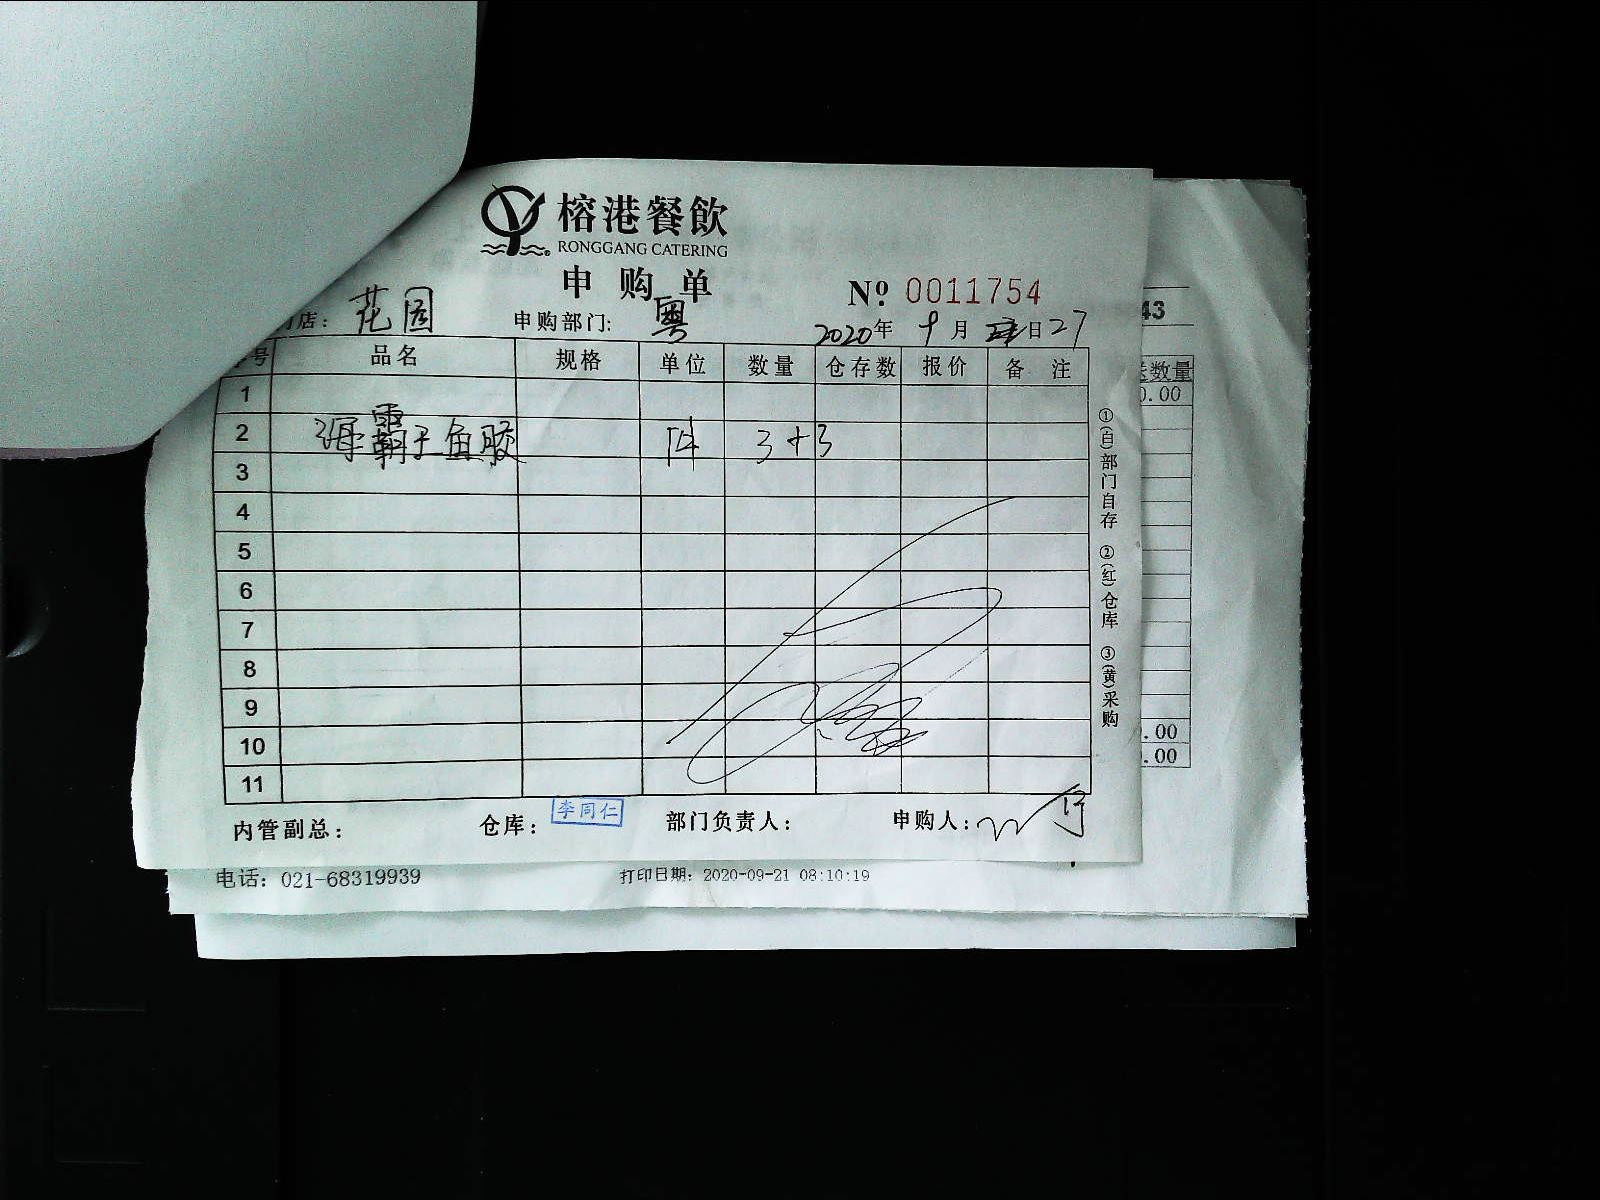 榕港餐飲
RONGGANG CATERING
申购单
№ 0011754
店: 花园 申购部门: 粤 2020年 9月 日27
号 品名 规格 单位 数量 仓存数 报价 备注
1
2 海霸王鱼胶 件 3+3
3
4
5
6
7
8
9
10
11
内管副总: 仓库: 李同仁 部门负责人: 申购人:
①(白)部门自存 ②(红)仓库 ③(黄)采购
43
数量
0.00
.00
.00
电话: 021-68319939 打印日期: 2020-09-21 08:10:19